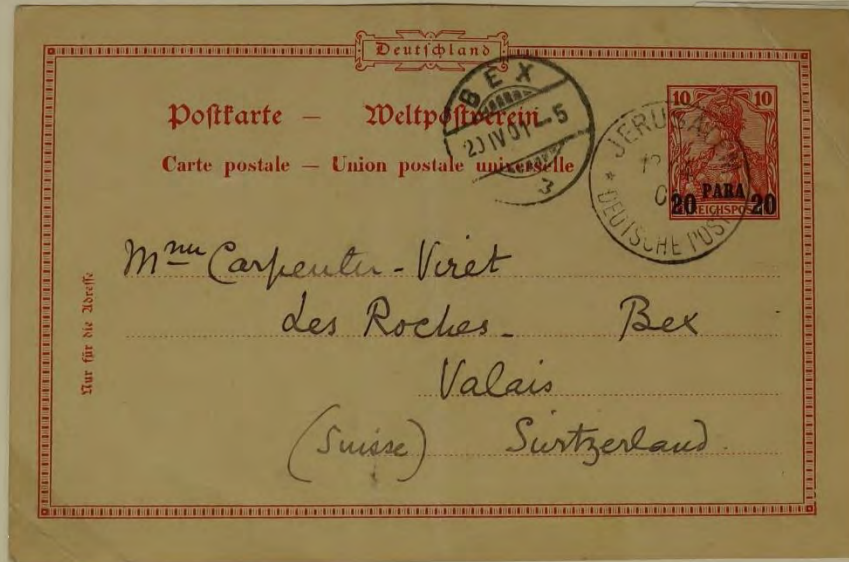 Deutschland
Postkarte — Weltpostverein
Carte postale — Union postale universelle
BEX
IV 01 - 5
3
10 10
20 PARA 20
REICHSPOST
* JERUSALEM *
DEUTSCHE POST
Nur für die Adresse
Mme Carpenter-Viret
Les Roches- Bex
Valais
(Suisse) Switzerland.